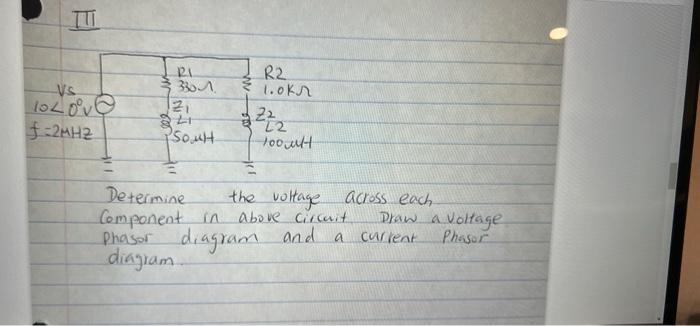 III
R1
330Ω
R2
1.0KΩ
Vs
10∠0°V
f=2MHZ
Z1
L1
50μH
Z2
L2
100μH
Determine the voltage across each
Component in above circuit Draw a voltage
Phasor diagram and a current Phasor
diagram.